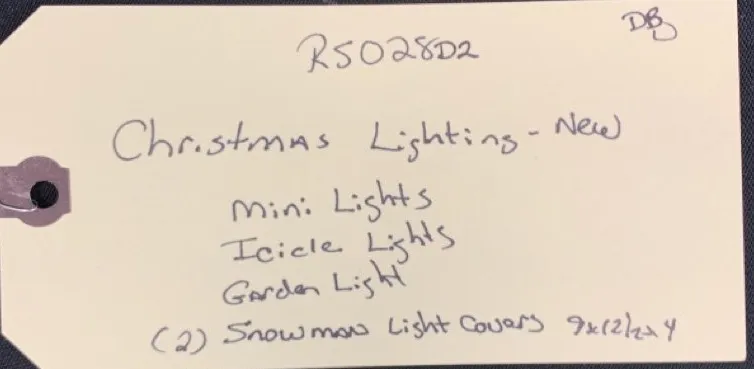 DB
RSO28D2
Christmas Lighting - New
Mini Lights
Icicle Lights
Garden Light
(2) Snowman Light Covers 9x12½x4